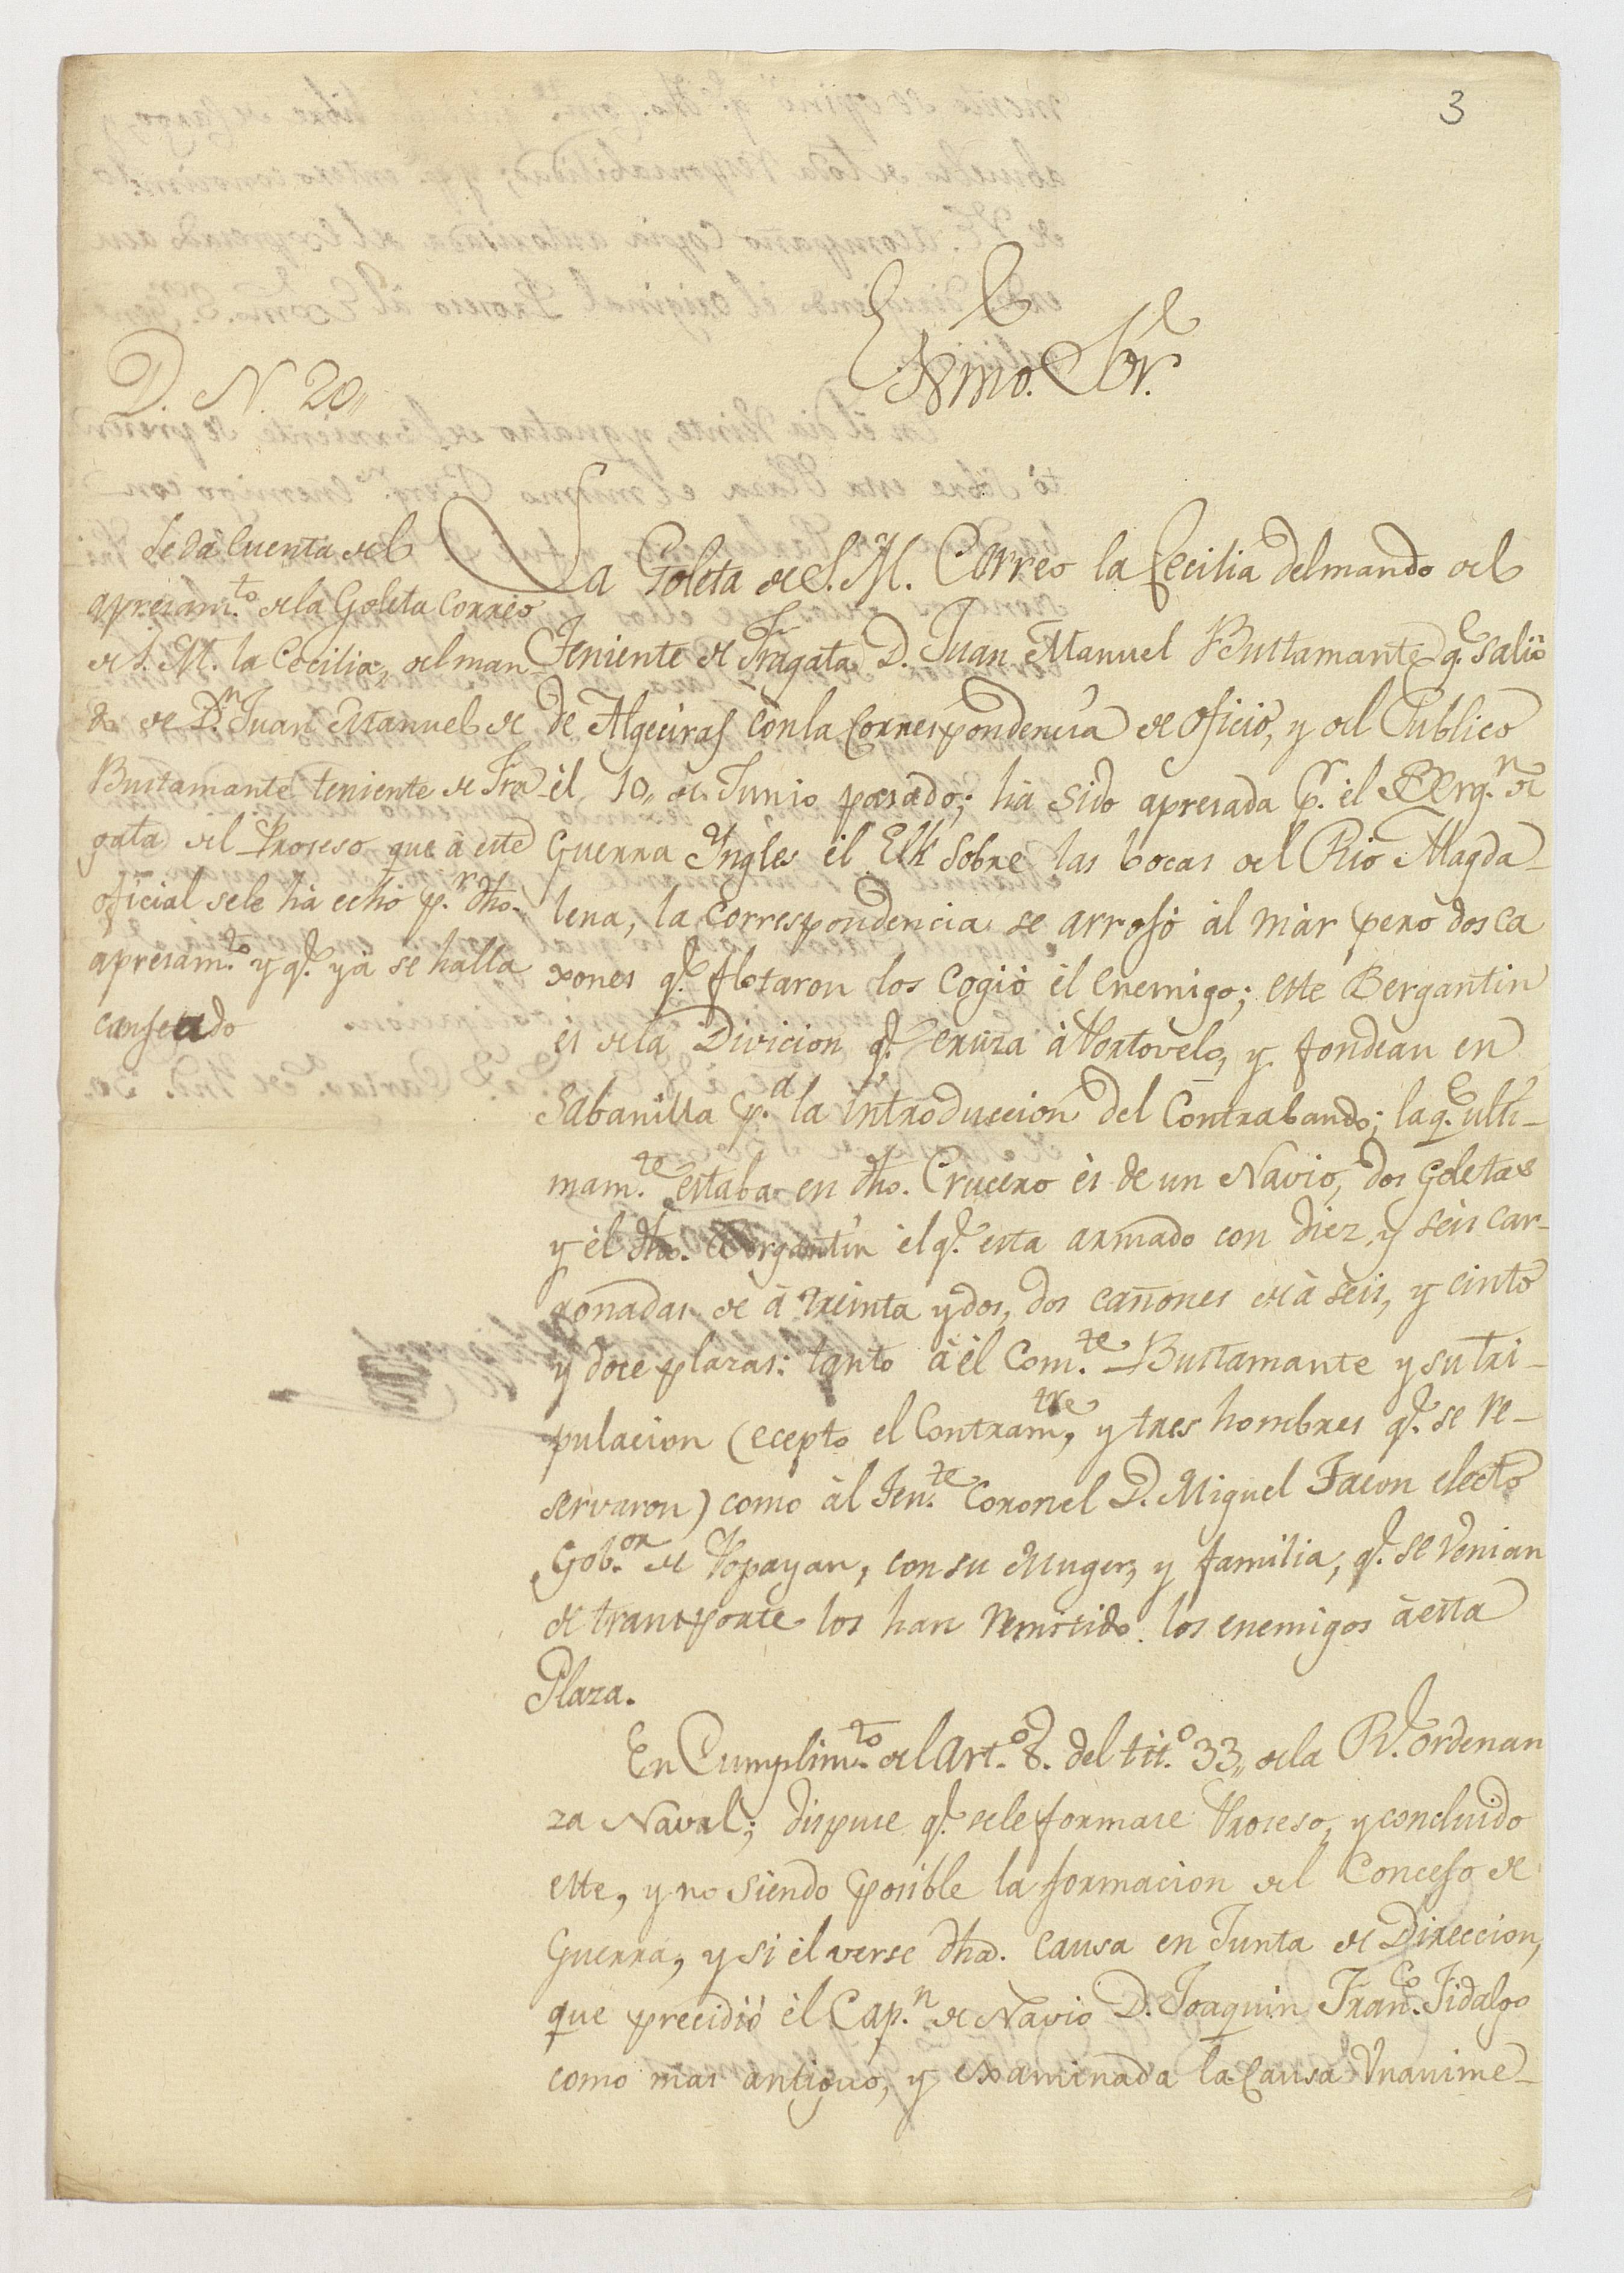 3
Exmo. Sôr.
D. N. 20,,
Se da cuenta del
apresam.to de la Goleta Correo
de S. M. la Cecilia, del man
do de D.n Juan Manuel de
Bustamante teniente de Fra
gata del Proseso que à este
oficial se le hà echo p.r dho.
apresam.to y q.e yà se halla
canseado
La Goleta de S. M. Correo la Cecilia del mando del
Teniente de Fragata D. Juan Manuel Bustamante q.e saliò
de Algeciras con la Correspondencia de oficio, y del Publico
èl 10,, de Junio pasado; hà sido apresada p.r èl Berg.n de
Guerra Ingles èl Elk sobre las bocas del Rio Magda-
lena, la Correspondencia se arrojò àl màr pero dos ca
xones q.e flotaron los Cogiò èl enemigo; este Bergantin
es de la Divicion q.e cruza à Portovelo, y fondean en
Sabanilla p.a la introduccion del Contrabando; la q.e ulti-
mam.te estaba en dho. Crucero ès de un Navio, dos Goletas
y èl dho. Bergantin èl q.e esta armado con diez y seis car-
ronadas de à treinta y dos, dos cañones de à seis, y cinto
y doce plazas: tanto à èl Com.te Bustamante y su tri-
pulacion (ecepto el Contram.tre, y tres hombres q.e se re-
servaron) como àl Ten.te Coronel D. Miguel Tacon electo
Gob.or de Popayan, con su Muger, y familia, q.e se venian
de transporte los han remitido los enemigos à esta
Plaza.
En Cumplim.to del Art.o 8. del tit.o 33,, de la R.l Ordenan
za Naval; dispuse q.e se le formase Proseso, y concluido
este, y no siendo posible la formacion del Concejo de
Guerra, y si èl verse dha. causa en Junta de Direccion,
que precidiò èl Cap.n de Navio D. Joaquin Fran.co Fidalgo
como mas antiguo, y examinada la Causa Vnanime-